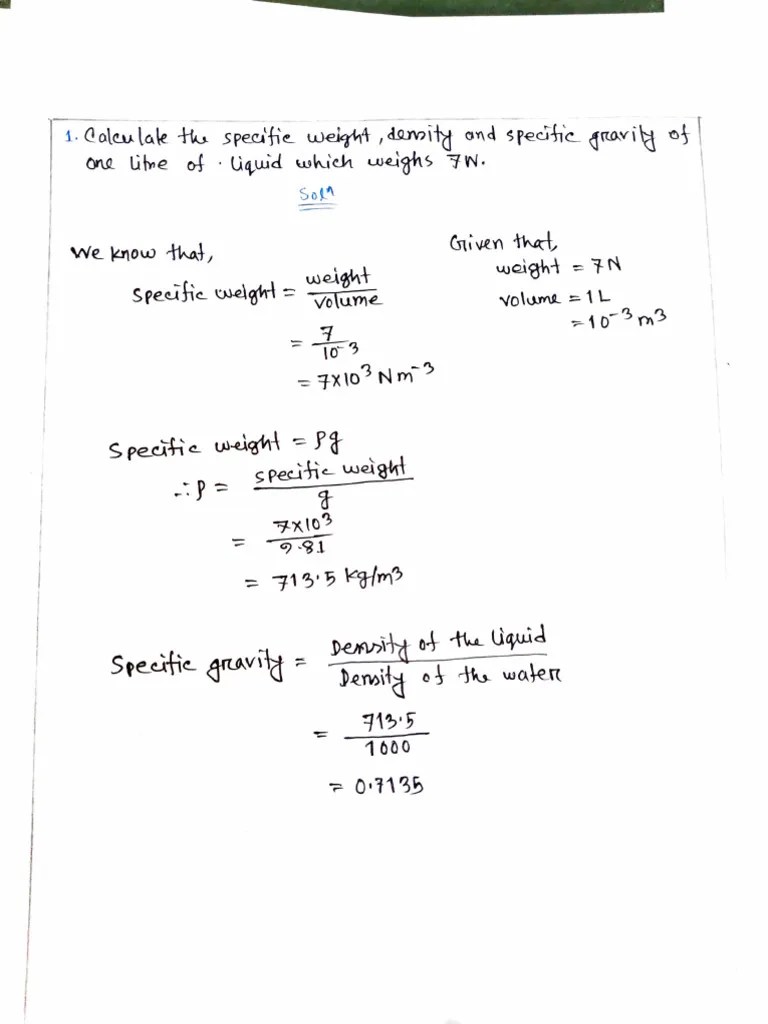 1. Calculate the specific weight, density and specific gravity of
one litre of . liquid which weighs 7N.
Solⁿ
Given that,
weight = 7N
volume = 1L
= 10⁻³ m³
We know that,
Specific weight = weight / volume
= 7 / 10⁻³
= 7×10³ Nm⁻³
Specific weight = ρg
∴ ρ = specific weight / g
= 7×10³ / 9.81
= 713.5 kg/m³
Specific gravity = Density of the liquid / Density of the water
= 713.5 / 1000
= 0.7135